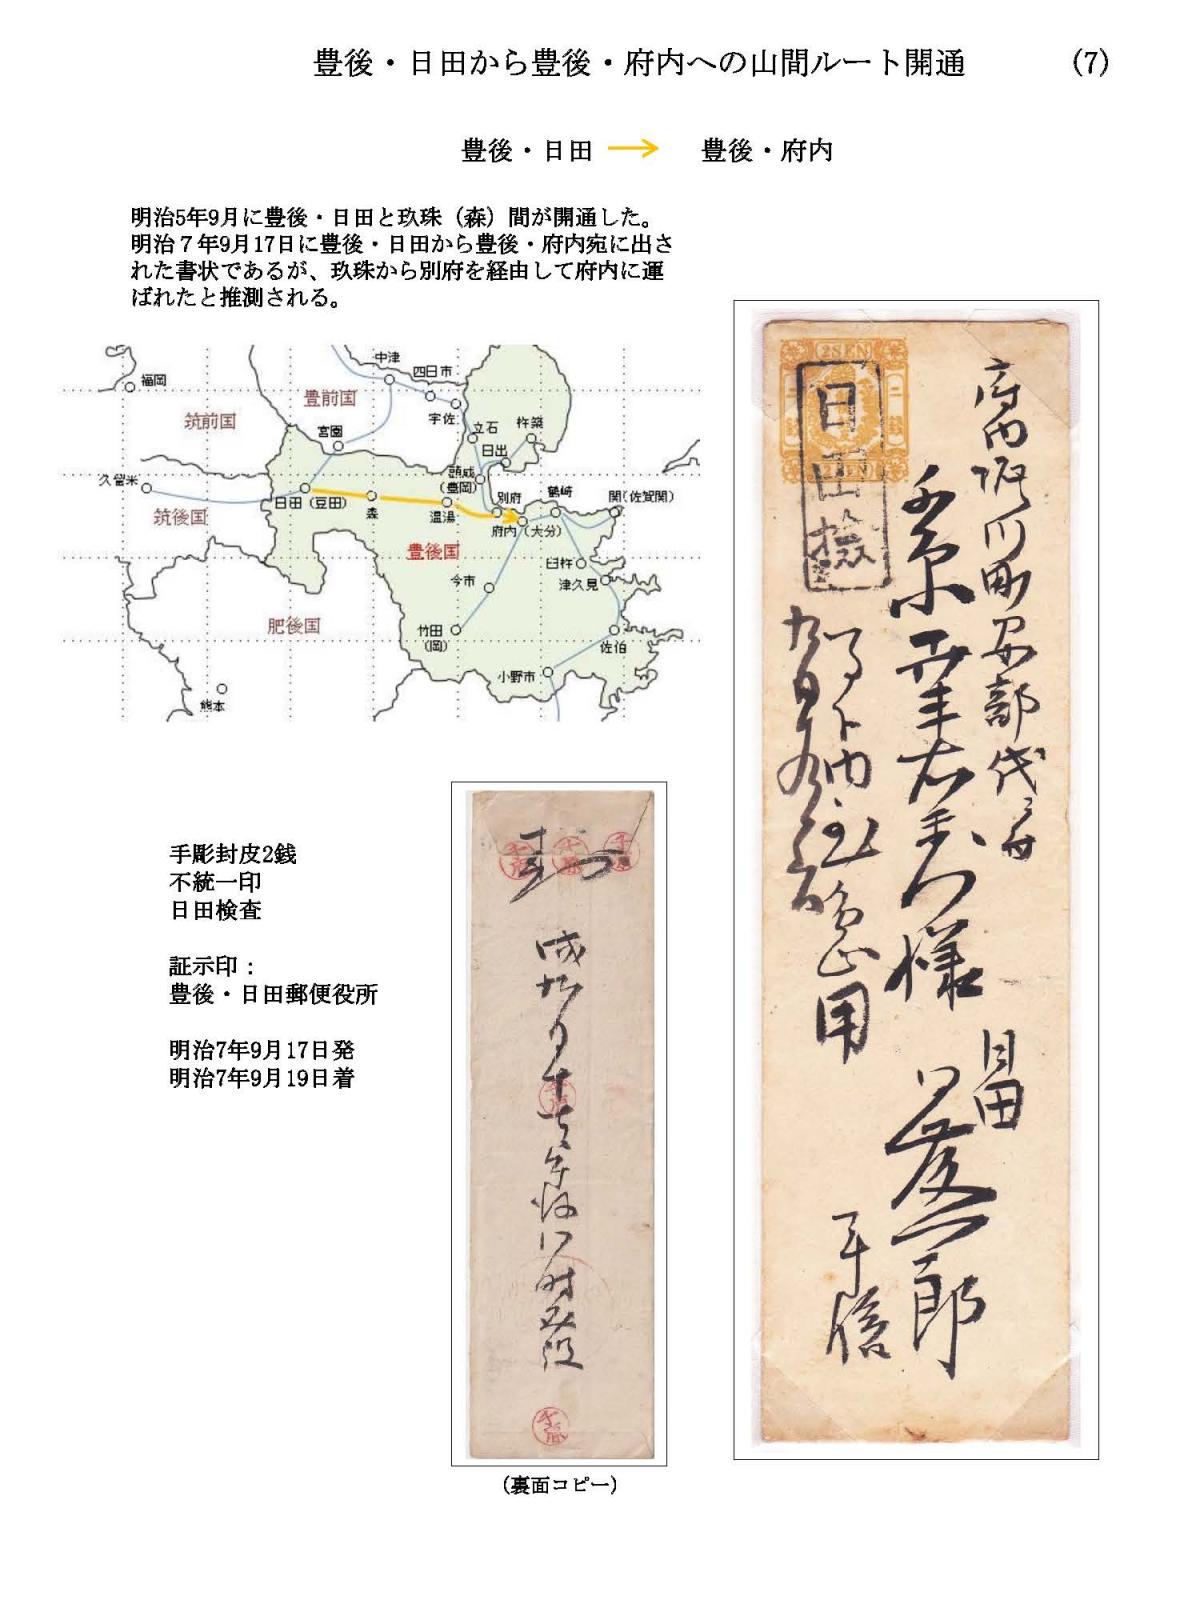 豊後・日田から豊後・府内への山間ルート開通
(7)
豊後・日田
豊後・府内
明治5年9月に豊後・日田と玖珠（森）間が開通した。
明治７年9月17日に豊後・日田から豊後・府内宛に出さ
れた書状であるが、玖珠から別府を経由して府内に運
ばれたと推測される。
中津
福岡
四日市
豊前国
筑前国
宇佐
宮園
立石
杵築
日出
頭成
(豊岡)
久留米
日田（豆田）
森
温湯
別府
鶴崎
関(佐賀関)
筑後国
府内（大分）
豊後国
臼杵
今市
津久見
肥後国
竹田
(岡)
佐伯
小野市
熊本
手彫封皮2銭
不統一印
日田検査
証示印：
豊後・日田郵便役所
明治7年9月17日発
明治7年9月19日着
(裏面コピー)
2SEN
日田検
府内堀川町
様
日田
平信